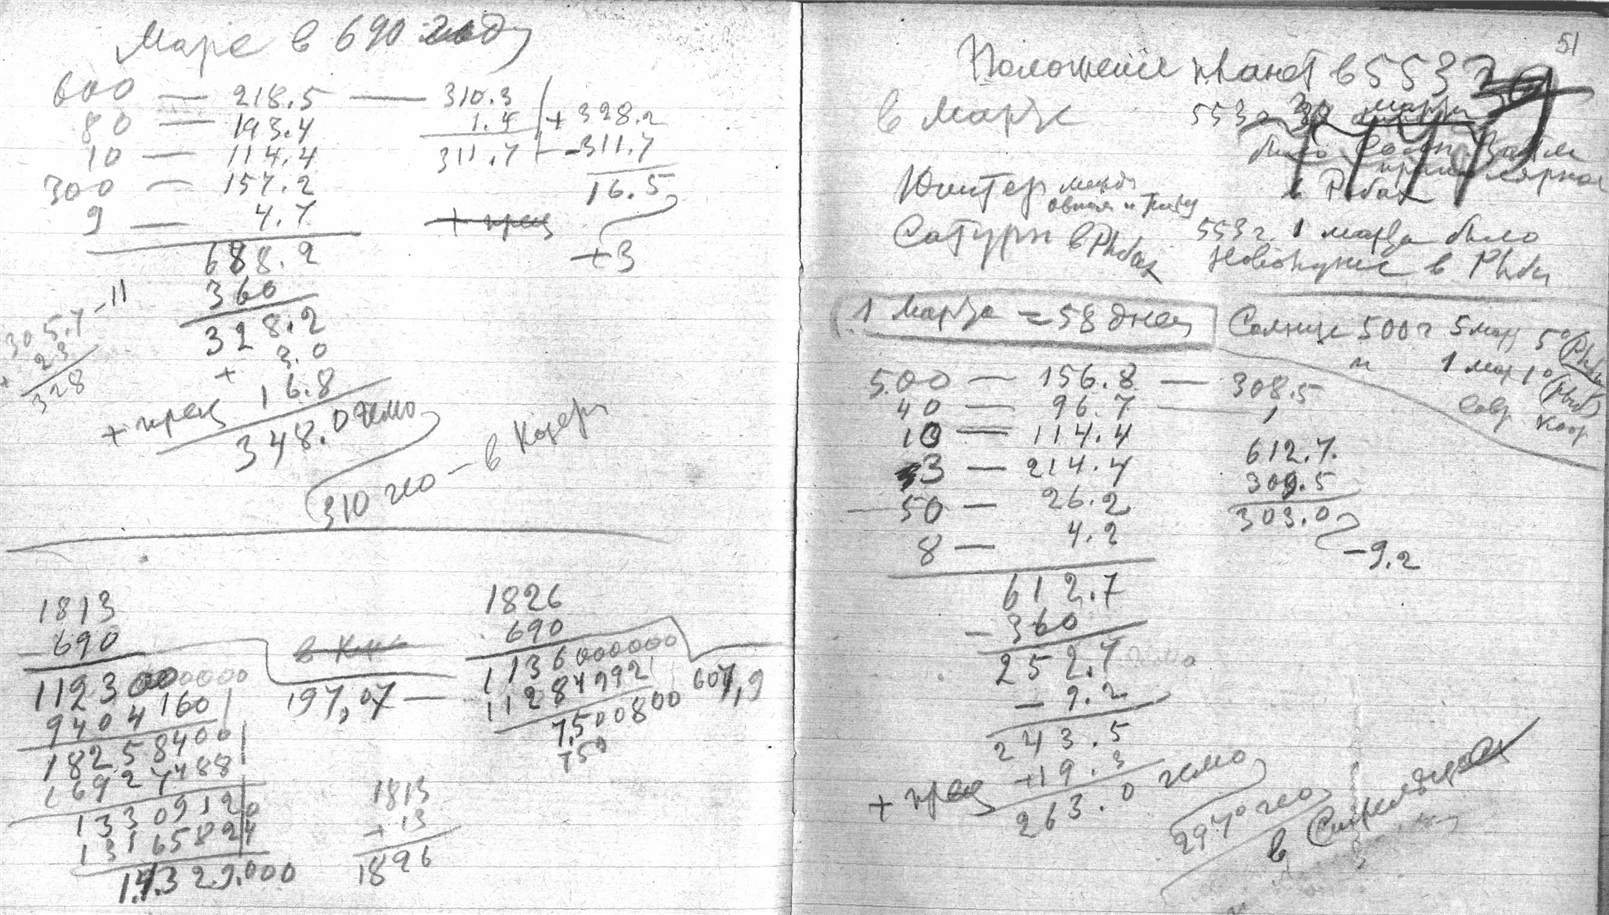 Марс в 690 году
600 — 218.5 — 310.3
80 — 193.4 1.4 + 328.2
10 — 114.4 311.7 — -311.7
300 — 157.2 16.5
9 — 4.7 + прец
688.2 +3
360
328.2
3.0
+ 16.8
+ прец
348.0 гелио
310 гео — в Козер
305.7 - 11
+ 23
328
1813
690
1123000000000
9404160
18258400
16927488
13309120
13165824
1.4329.000
в К
197,07 —
1813
+ 13
1826
1826
690
1136000000
11284992
607,9
7500800
750
51
Положение планет в 553 г
в Марте
553 г 30 марта
было Солн Затм
в Рыбах
Юпитер между
овном и
Сатурн в Рыбах
553 г 1 марта было
Новолуние в Рыбы
1 Марта = 58 дней
Солнце 500 г 5 мар 5° (Рыб
и 1 мар 1° (Рыб)
Совр коор
500 — 156.8 — 308.5
40 — 96.7 — 1
10 — 114.4
3 — 214.4
50 — 26.2
8 — 4.2
612.7
- 360
252.7
- 9.2
243.5
+ 19.3
+ прец
263.0 гелио
612.7.
309.5
303.0
- 9.2
297° гео
в Стрельцах